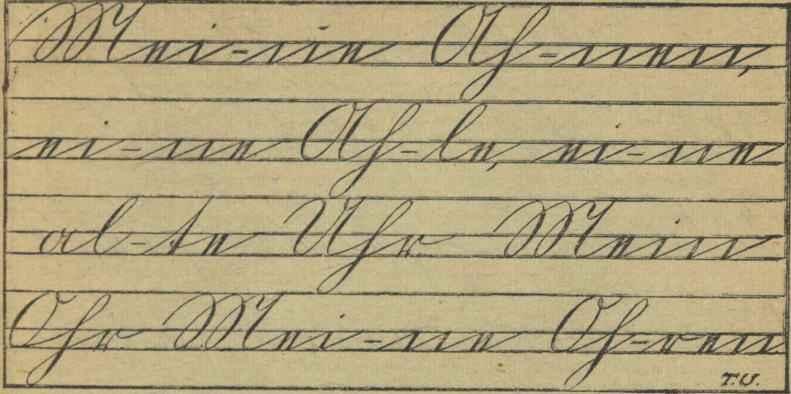 Mei-ne Ah-nen,
ei-ne Ah-le, ei-ne
al-te Uhr Mein
Ohr Mei-ne Oh-ren
T.U.